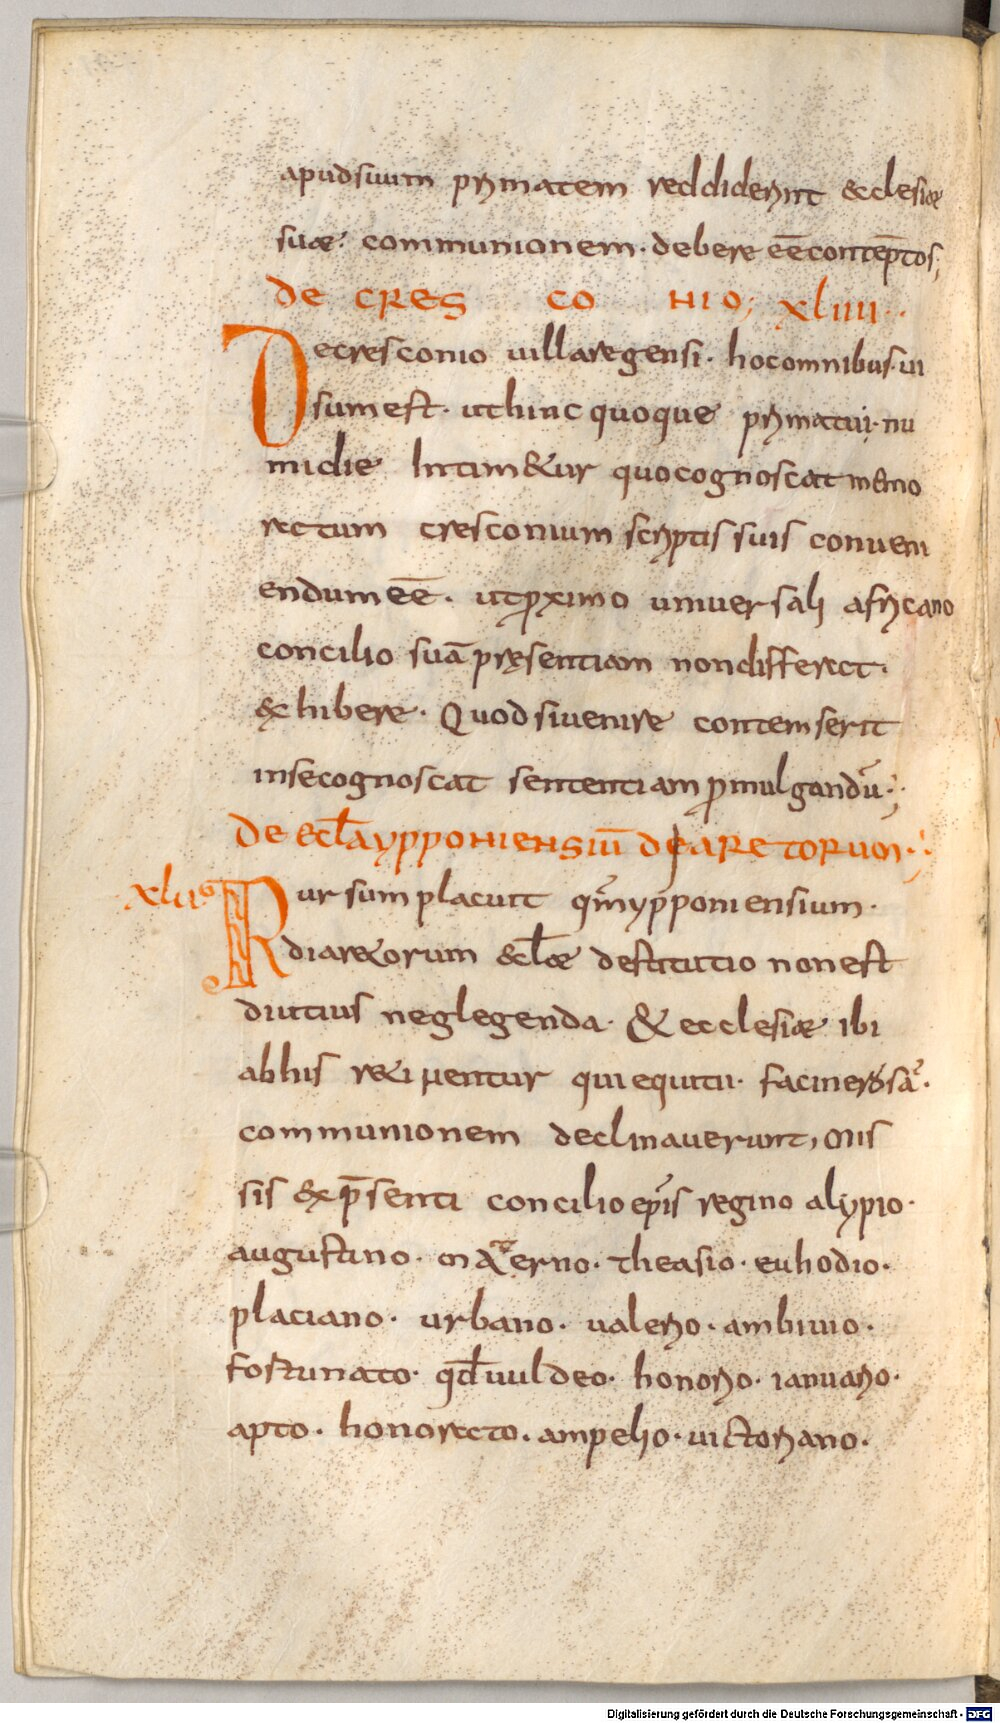 apudsuum primatem reddiderint & clesiæ
suæ communionem. debere eēcontēptos;
de cres co nio; xliiii..
Decresconio uillaregensi. hocomnibus.ui
sumest. uthinc quoque primatui.nu
midie littim&ur quocognoscat memo
rectum cresconium scriptis suis conueni
endumeē. utproximo uniuersali africano
concilio suā pręsentiam nondifferect.
&hibere. Quodsiuenire contemserit
insecognoscat sententiam promulgandū;
De eclaypponiensiū dearetorum.;
xlu Rursumplacuit qmypponiensium.
diare&orum &clæ destitutio nonest
diutius neglegenda. & ecclesiæ ibi
abhis re&inentur quiequitii. facinerosā.
communionem declinauerunt, mis
sis &p̄senti concilioepis regino alypio.
augustino. materno. theasio. euhodio.
placiano. urbano. ualerio. ambiuio.
fortunato. qđuuldeo. honorio. ianuario.
apto. honorecto. ampelio. uictoriano.
Digitalisierung gefördert durch die Deutsche Forschungsgemeinschaft - DFG